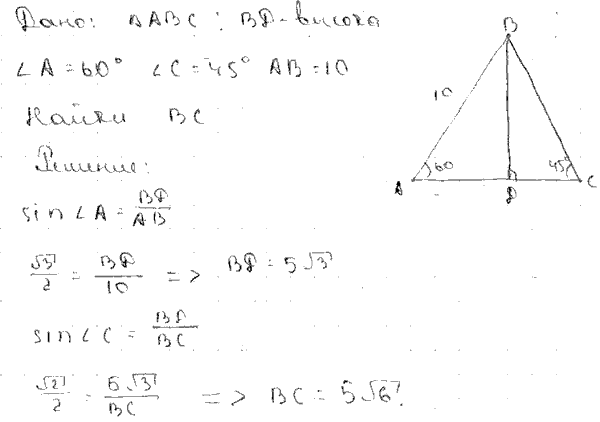 Дано: ΔABC : BD - высота
∠A = 60° ∠C = 45° AB = 10
Найти BC
Решение:
sin∠A = BD/AB
√3/2 = BD/10 => BD = 5√3
sin∠C = BD/BC
√2/2 = 5√3/BC => BC = 5√6.
B
10
60
45°
A
D
C